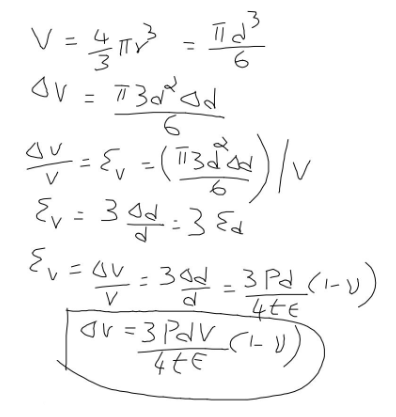 V = 4/3 πr³ = πd³/6
ΔV = π3d²Δd/6
ΔV/V = εᵥ = (π3d²Δd/6)/V
εᵥ = 3 Δd/d = 3 εd
εᵥ = ΔV/V = 3Δd/d = 3Pd/4tE (1-ν)
ΔV = 3PdV/4tE (1-ν)